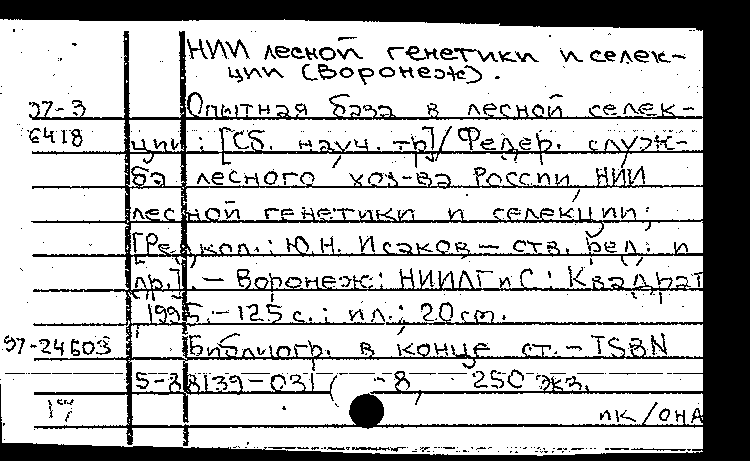 НИИ лесной генетики и селек-
ции (Воронеж).
97-3 Опытная база в лесной селек-
6418 ции : [Сб. науч. тр]/ Федер. служ-
ба лесного хоз-ва России, НИИ
лесной генетики и селекции;
[Редкол.: Ю.Н. Исаков - отв. ред. и
др.]. - Воронеж: НИИЛГиС : Квадрат
1995. - 125 с. : ил.; 20 см.
97-24603 Библиогр. в конце ст. - ISBN
5-88139-031 -8, 250 экз.
17 пк/ОНА